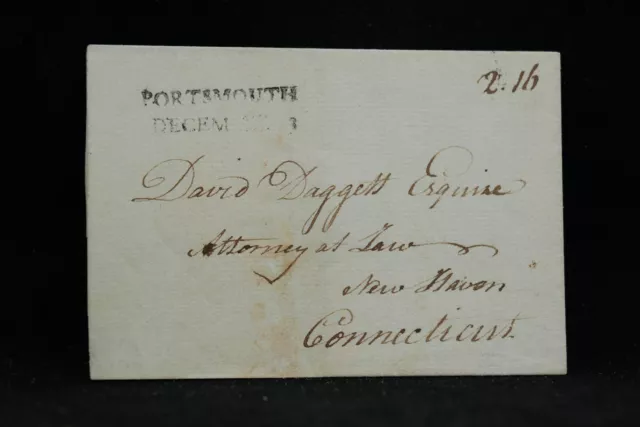 2.16
PORTSMOUTH
DECEM 3
David Daggett Esquire
Attorney at Law
New Haven
Connecticut